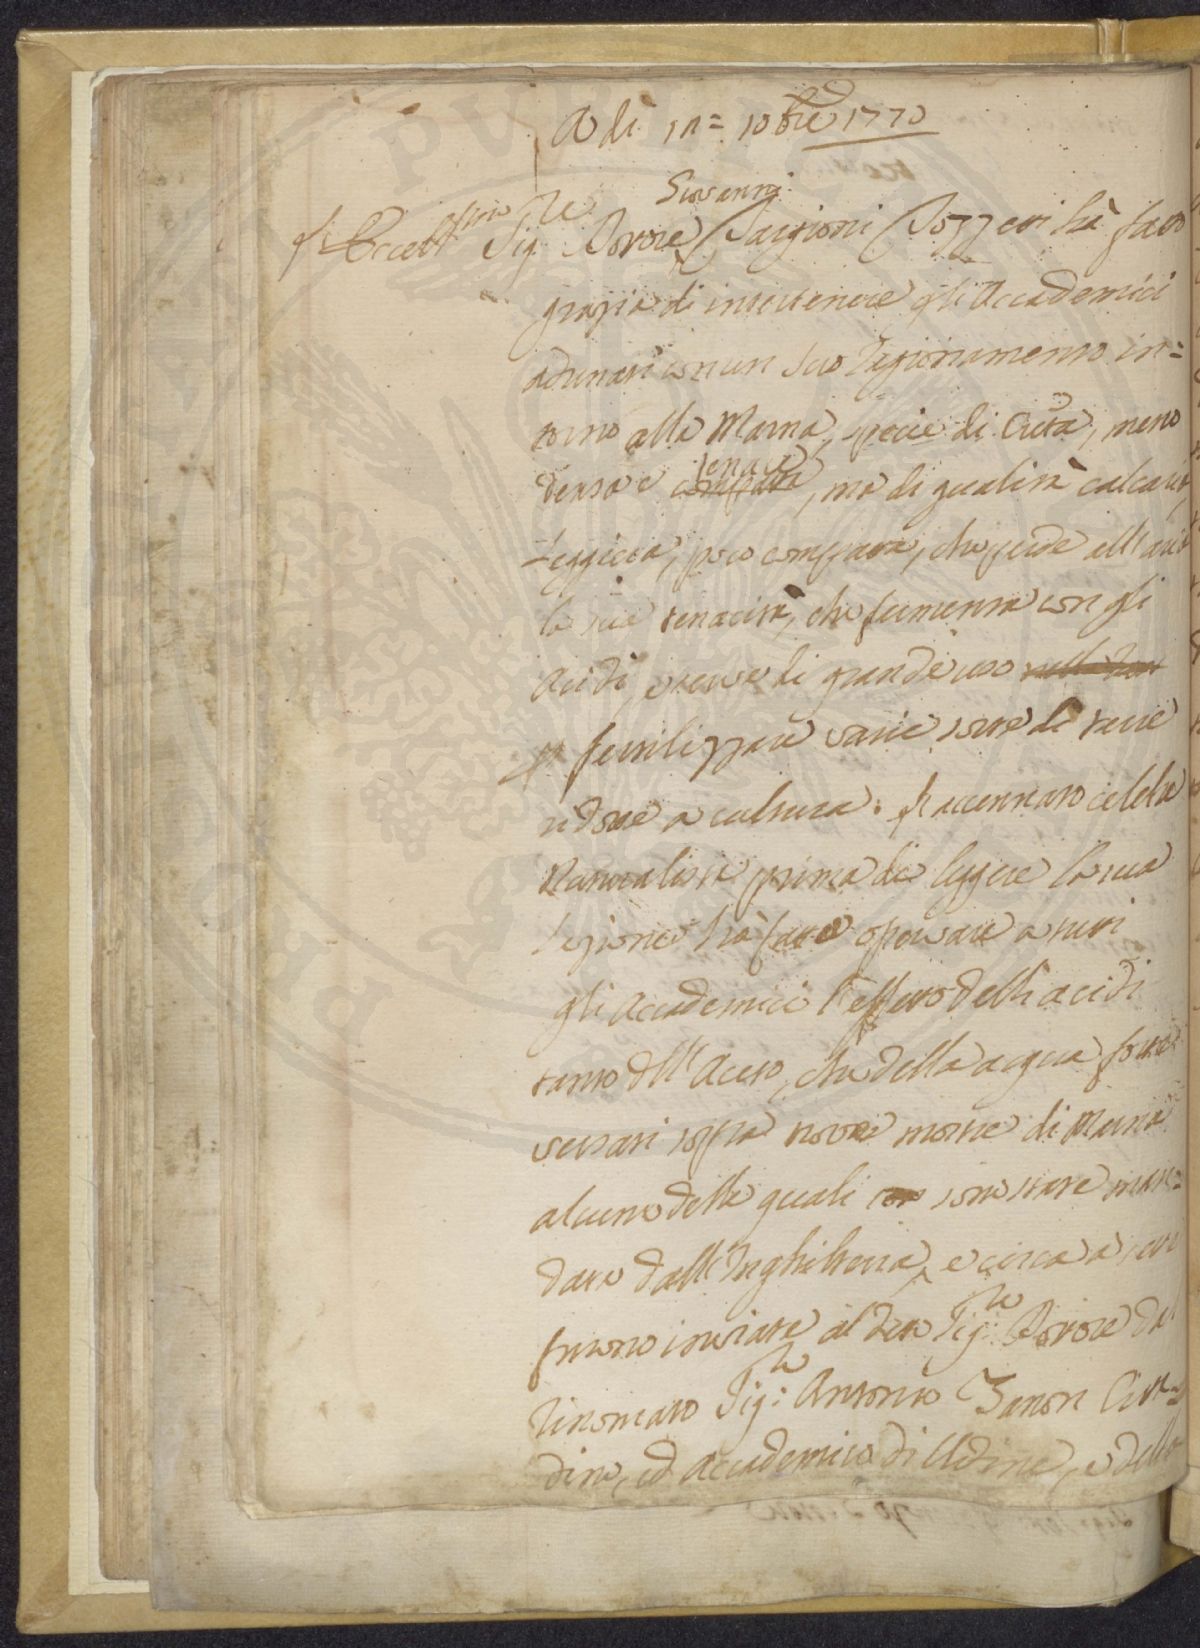 A dì 12= 10bre 1770
Giovanni
L'Eccell.mo Sig.re Dottore Targioni Tozzetti hà fatto
grazia di intertenere gli Accademici
adunati con un suo Ragionamento in=
torno alla Marna, specie di Creta, meno
tenace
densa e compatta, ma di qualità calcaria,
leggiera, poco compatta, che perde all'aria
la sua tenacità, che fermenta con gli
acidi, e serve di grande uso nella
p fertilizzare varie sorte di terre
ridotte a cultura. L'accennato celebre
Naturalista prima di leggere la sua
Lezione hà fatto osservare a tutti
gli Accademici l'effetto delli acidi
tanto dell'Aceto, che della acqua forte
versati sopra nove mostre di Marna
alcune delle quali sono state man=
date dall'Inghilterra, e circa a sei
furono inviate al detto Sig.re Dottore dal
rinomato Sig.re Antonio Zanon Citta=
dino, ed Accademico di Udine, e dello